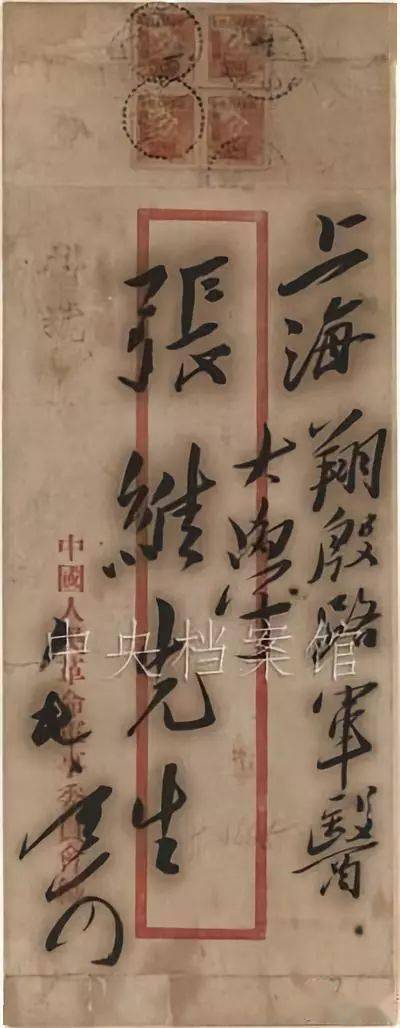 上海翔殷路軍醫
大學
張維先生
中國人民革命軍事委員會
中央档案馆
掛號